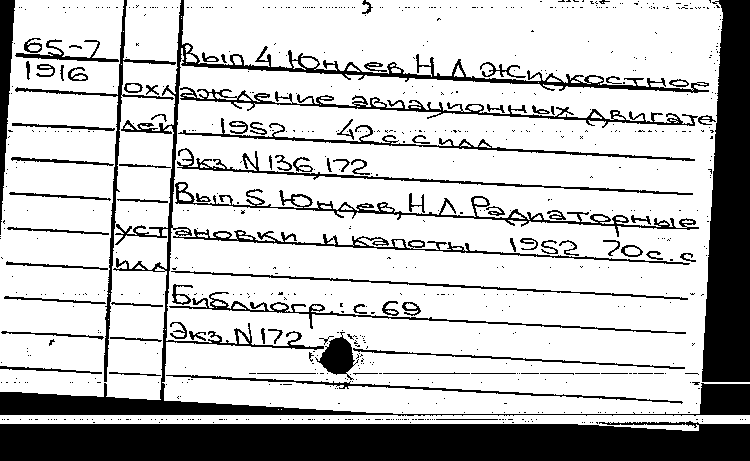 65-7
1916
Вып. 4. Юндев, Н.Л. Жидкостное
охлаждение авиационных двигате
лей. 1952. 42 с. с илл.
Экз. N 136, 172.
Вып. 5. Юндев, Н.Л. Радиаторные
установки и капоты. 1952. 70 с. с
илл.
Библиогр.: с. 69.
Экз. N 172